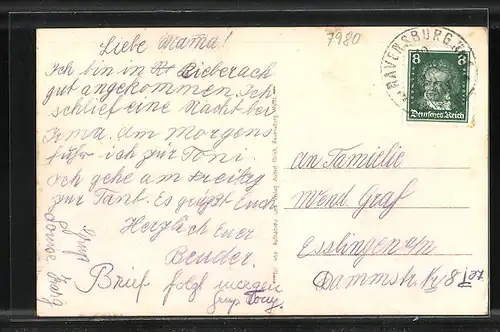 Liebe Mama!
7980
RAVENSBURG
8 8
Deutsches Reich
Ich bin in Bieberach
gut angekommen. Ich
schlief eine Nacht bei
Irma. Am Morgens
fuhr ich zur Toni.
Ich gehe am Freitag
zur Tant. Es grüßt Euch
Herzlich Euer
Bruder.
Brief folgt morgen
Gruß Tony.
Gruß
an Familie
Wend Graf
Esslingen
Dammstr. 8